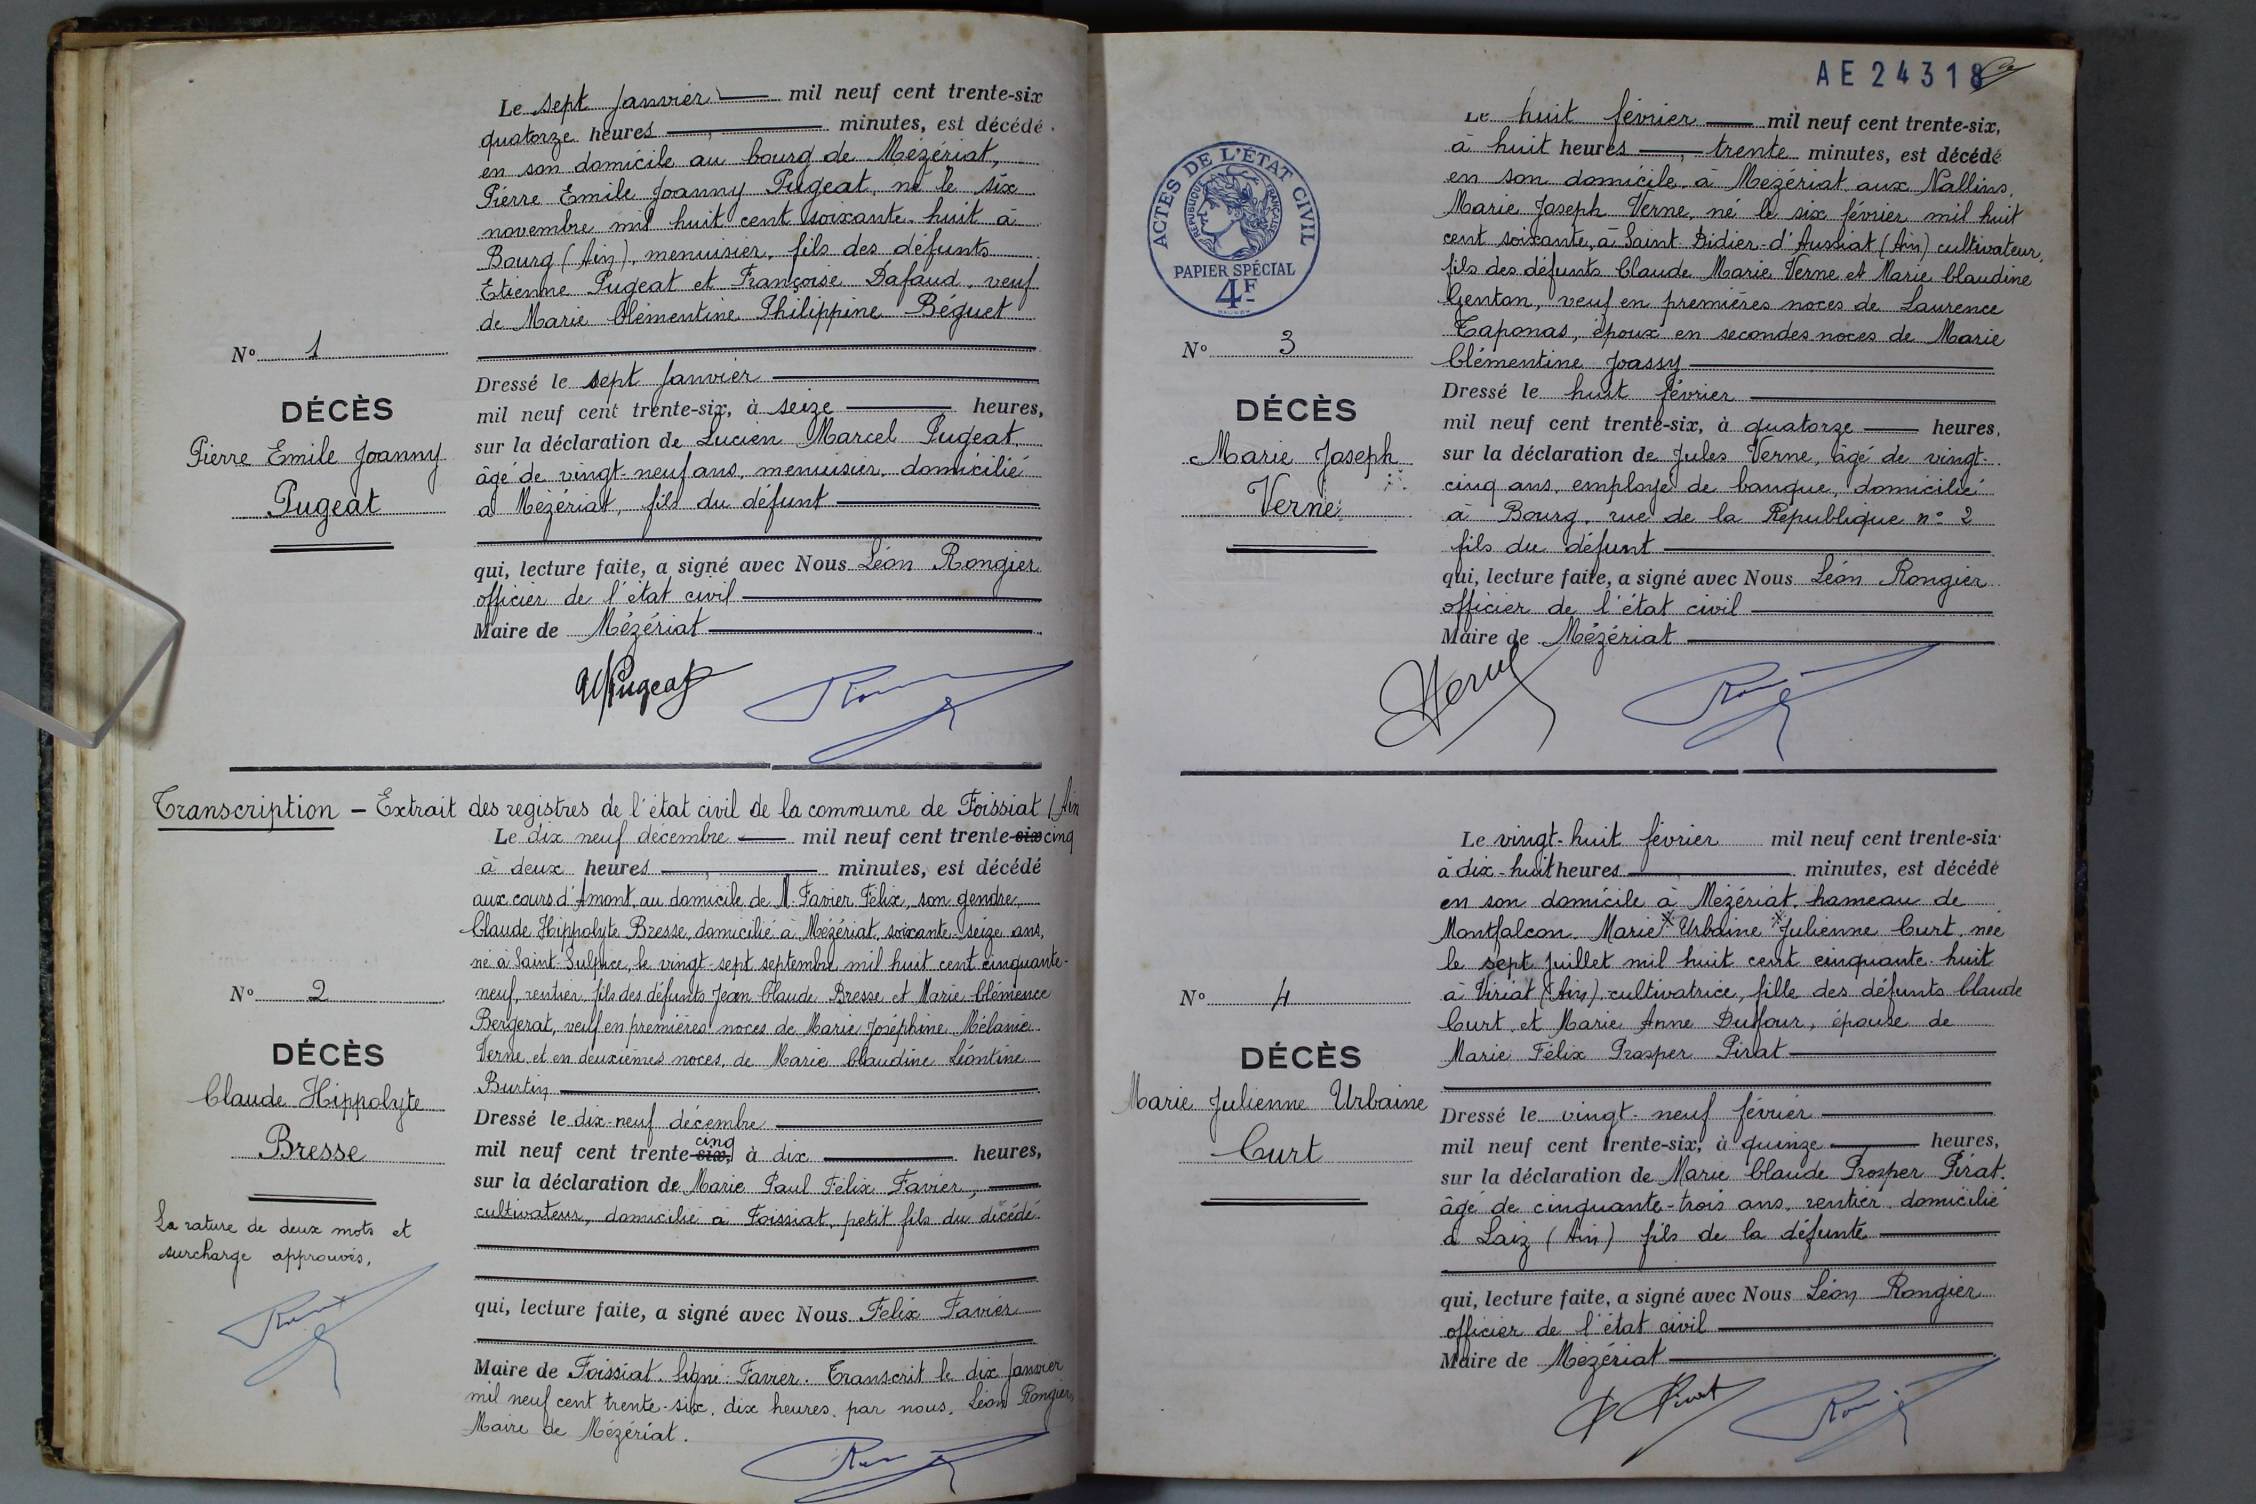 Le sept janvier mil neuf cent trente-six
quatorze heures minutes, est décédé
en son domicile au bourg de Mézériat,
Pierre Emile Joanny Pugeat, né le six
novembre mil huit cent soixante-huit à
Bourg (Ain), menuisier, fils des défunts
Etienne Pugeat et Françoise Dafaud, veuf
de Marie Clémentine Philippine Béguet
N° 1
DÉCÈS
Pierre Emile Joanny
Pugeat
Dressé le sept janvier
mil neuf cent trente-six, à seize heures,
sur la déclaration de Lucien Marcel Pugeat,
âgé de vingt-neuf ans, menuisier, domicilié
à Mézériat, fils du défunt
qui, lecture faite, a signé avec Nous Léon Rongier
officier de l'état civil
Maire de Mézériat
Pugeat
Transcription - Extrait des registres de l'état civil de la commune de Foissiat (Ain
Le dix neuf décembre mil neuf cent trente-six cinq
à deux heures minutes, est décédé
aux cours d'Amont, au domicile de M. Favier Félix, son gendre,
Claude Hippolyte Bresse, domicilié à Mézériat, soixante-seize ans,
né à Saint-Sulpice, le vingt-sept septembre mil huit cent cinquante-
neuf, rentier, fils des défunts Jean Claude Bresse et Marie Clémence
Bergerat, veuf en premières noces de Marie Joséphine Mélanie
Verne et en deuxièmes noces, de Marie Claudine Léontine
Burtin
N° 2
DÉCÈS
Claude Hippolyte
Bresse
La rature de deux mots et
surcharge approuvés,
Dressé le dix-neuf décembre
cinq
mil neuf cent trente-six, à dix heures,
sur la déclaration de Marie Paul Félix Favier,
cultivateur, domicilié à Foissiat, petit fils du décédé
qui, lecture faite, a signé avec Nous Felix Favier
Maire de Foissiat. Signé: Favier. Transcrit le dix janvier
mil neuf cent trente-six, dix heures, par nous, Léon Rongier,
Maire de Mézériat.
AE24318
ACTES DE L'ÉTAT CIVIL
RÉPUBLIQUE FRANÇAISE
PAPIER SPÉCIAL
4F
Le huit février mil neuf cent trente-six,
à huit heures trente minutes, est décédé
en son domicile à Mézériat aux Nallins,
Marie Joseph Verne, né le six février mil huit
cent soixante, à Saint-Didier-d'Aussiat (Ain) cultivateur,
fils des défunts Claude Marie Verne et Marie Claudine
Genton, veuf en premières noces de Laurence
Taponas, époux en secondes noces de Marie
Clémentine Joassy
N° 3
DÉCÈS
Marie Joseph
Verne
Dressé le huit février
mil neuf cent trente-six, à quatorze heures,
sur la déclaration de Jules Verne, âgé de vingt-
cinq ans, employé de banque, domicilié
à Bourg, rue de la République n° 2
fils du défunt
qui, lecture faite, a signé avec Nous Léon Rongier
officier de l'état civil
Maire de Mézériat
Verne
Le vingt-huit février mil neuf cent trente-six
à dix-huit heures minutes, est décédé
en son domicile à Mézériat, hameau de
Montfalcon, Marie Urbaine Julienne Curt, née
le sept juillet mil huit cent cinquante-huit
à Viriat (Ain), cultivatrice, fille des défunts Claude
Curt et Marie Anne Duffour, épouse de
Marie Félix Prosper Pirat
N° 4
DÉCÈS
Marie Julienne Urbaine
Curt
Dressé le vingt-neuf février
mil neuf cent trente-six, à quinze heures,
sur la déclaration de Marie Claude Prosper Pirat,
âgé de cinquante-trois ans, rentier, domicilié
à Laiz (Ain) fils de la défunte
qui, lecture faite, a signé avec Nous Léon Rongier
officier de l'état civil
Maire de Mézériat
Pirat